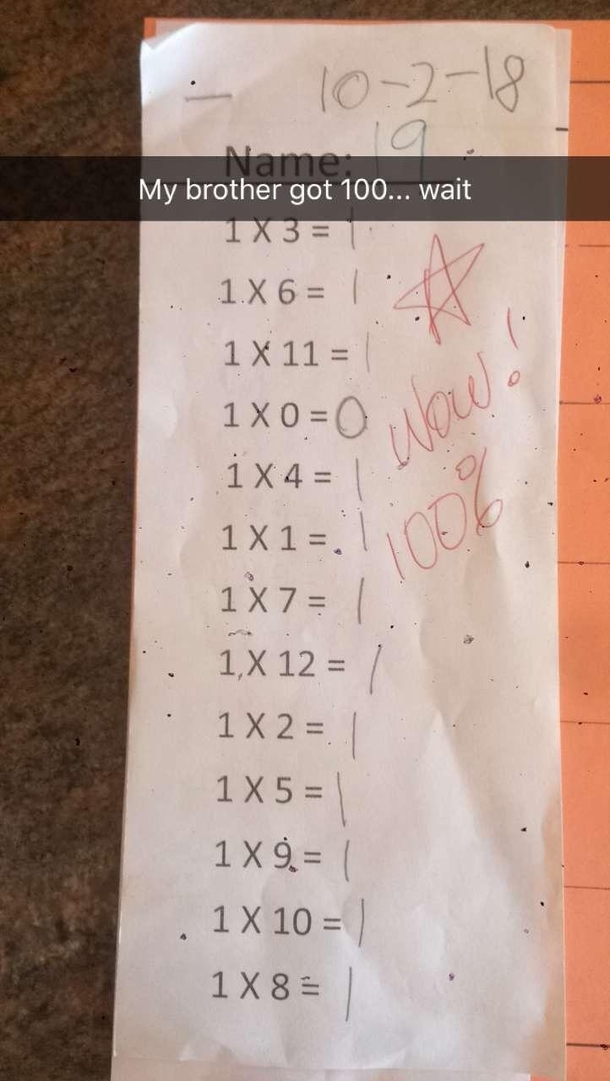 10-2-18
Name: 19
My brother got 100... wait
1 X 3 = 1
1 X 6 = 1
1 X 11 = 1
1 X 0 = 0
1 X 4 = 1
1 X 1 = 1
1 X 7 = 1
1 X 12 = 1
1 X 2 = 1
1 X 5 = 1
1 X 9 = 1
1 X 10 = 1
1 X 8 = 1
Wow!
100%